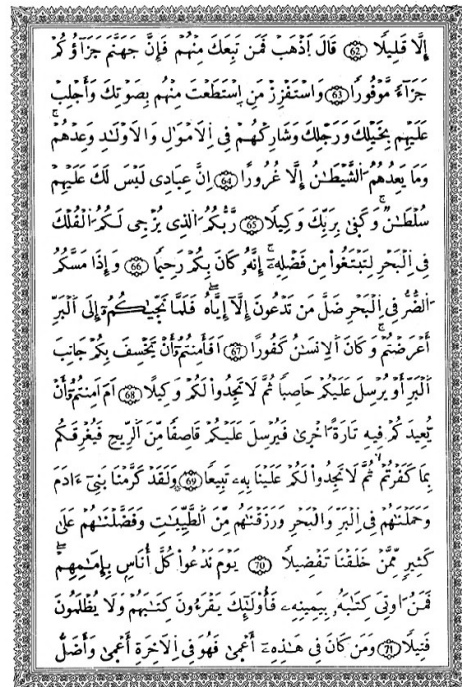 إِلَّا قَلِيلًا ۝62 قَالَ اَذْهَبْ فَمَن تَبِعَكَ مِنْهُمْ فَإِنَّ جَهَنَّمَ جَزَآؤُكُمْ
جَزَآءً مَّوْفُورًا ۝63 وَاسْتَفْزِزْ مَنِ اِسْتَطَعْتَ مِنْهُم بِصَوْتِكَ وَأَجْلِبْ
عَلَيْهِم بِخَيْلِكَ وَرَجْلِكَ وَشَارِكْهُمْ فِى اِلَامْوَٰلِ وَالَاوْلَٰدِ وَعِدْهُمْ
وَمَا يَعِدُهُمُ الشَّيْطَٰنُ إِلَّا غُرُورًا ۝64 اِنَّ عِبَادِى لَيْسَ لَكَ عَلَيْهِمْ
سُلْطَٰنٌ وَكَفىٰ بِرَبِّكَ وَكِيلًا ۝65 رَّبُّكُمُ الَذِى يُزْجِى لَكُمُ الْفُلْكَ
فِى اِلْبَحْرِ لِتَبْتَغُوا۟ مِن فَضْلِهِۦٓ إِنَّهُۥ كَانَ بِكُمْ رَحِيمًا ۝66 وَإِذَا مَسَّكُمُ
الضُّرُّ فِى اِلْبَحْرِ ضَلَّ مَن تَدْعُونَ إِلَّآ إِيَّاهُ فَلَمَّا نَجّىٰكُمُۥٓ إِلَى اَلْبَرِّ
أَعْرَضْتُمْ وَكَانَ اَلِانسَٰنُ كَفُورًا ۝67 اَفَأَمِنتُمُۥٓ أَنْ يَّخْسِفَ بِكُمْ جَانِبَ
اَلْبَرِّ أَوْ يُرْسِلَ عَلَيْكُمْ حَاصِبًا ثُمَّ لَا تَجِدُوا۟ لَكُمْ وَكِيلًا ۝68 اَمَ اَمِنتُمُۥٓ أَنْ
يُّعِيدَكُمْ فِيهِ تَارَةً اُخْرىٰ فَيُرْسِلَ عَلَيْكُمْ قَاصِفًا مِّنَ اَلرِّيحِ فَيُغْرِقَكُم
بِمَا كَفَرْتُمْ ثُمَّ لَا تَجِدُوا۟ لَكُمْ عَلَيْنَا بِهِۦ تَبِيعًا ۝69 وَلَقَدْ كَرَّمْنَا بَنِىٓ ءَادَمَ
وَحَمَلْنَٰهُمْ فِى اِلْبَرِّ وَالْبَحْرِ وَرَزَقْنَٰهُم مِّنَ اَلطَّيِّبَٰتِ وَفَضَّلْنَٰهُمْ عَلَىٰ
كَثِيرٍ مِّمَّنْ خَلَقْنَا تَفْضِيلًا ۝70 يَوْمَ نَدْعُوا۟ كُلَّ أُنَاسٍ بِإِمَٰمِهِمْ
فَمَنُ اوتِىَ كِتَٰبَهُۥ بِيَمِينِهِۦ فَأُوْلَٰٓئِكَ يَقْرَءُونَ كِتَٰبَهُمْ وَلَا يُظْلَمُونَ
فَتِيلًا ۝71 وَمَن كَانَ فِى هَٰذِهِۦٓ أَعْمىٰ فَهُوَ فِى اِلَاخِرَةِ أَعْمىٰ وَأَضَلُّ